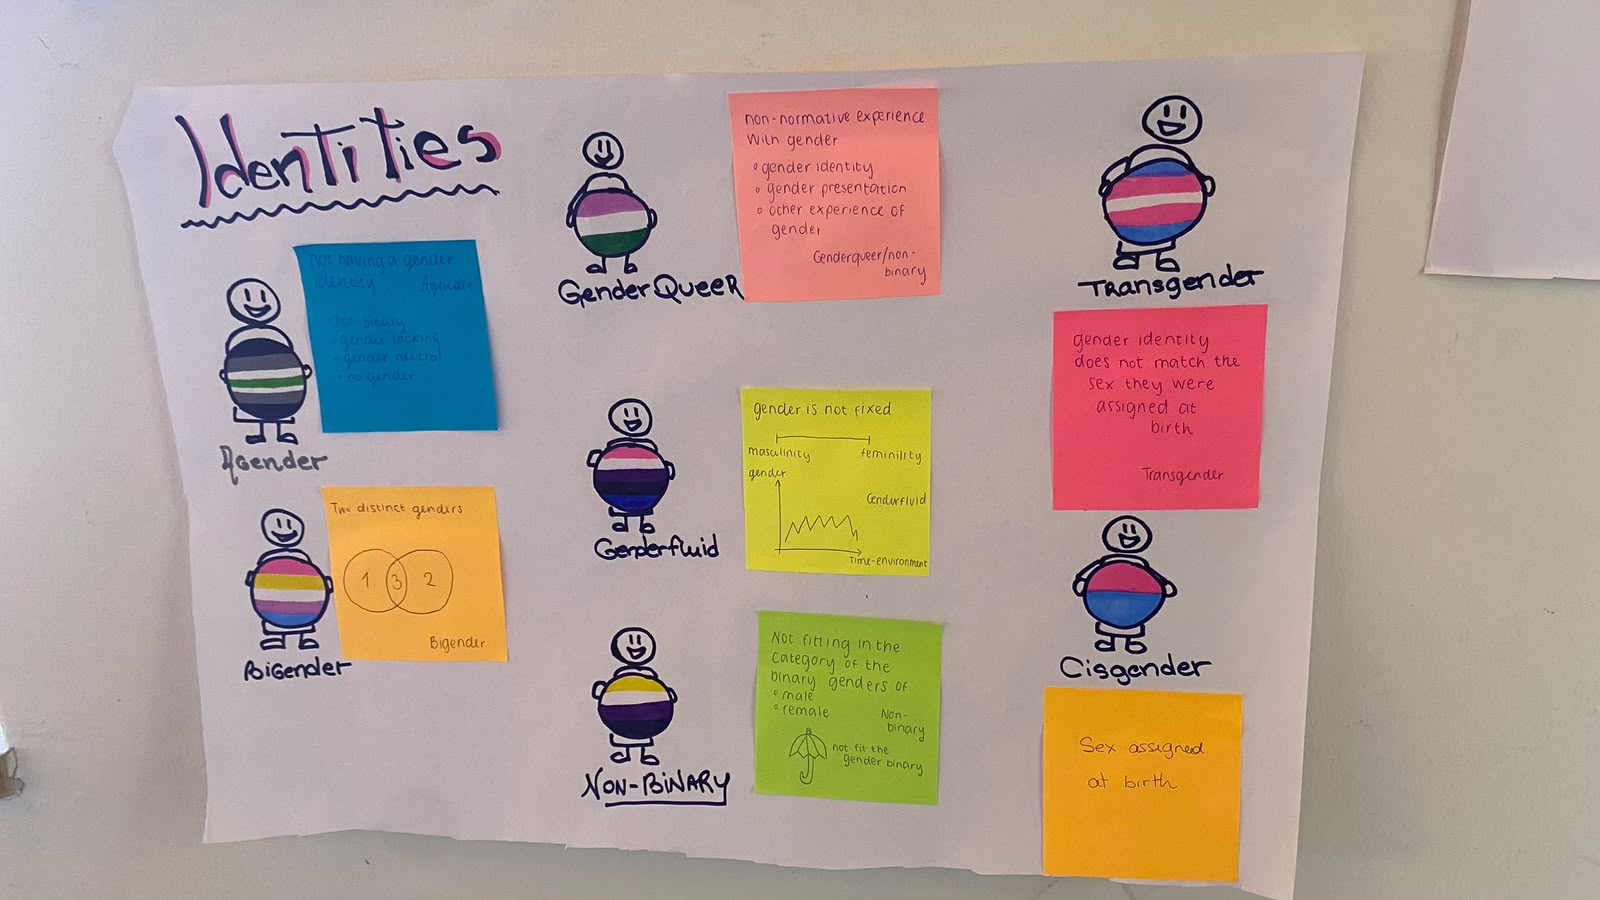 Identities
not having a gender
identity
Agender
non-binary
gender lacking
gender neutral
no gender
Agender
Two distinct genders
1 3 2
Bigender
BiGender
GenderQueer
non-normative experience
with gender
gender identity
gender presentation
other experience of
gender
Genderqueer/non-
binary
gender is not fixed
masculinity feminility
gender
Genderfluid
Time-environment
Genderfluid
Not fitting in the
category of the
binary genders of
male
female
Non-
binary
not fit the
gender binary
NON-BINARY
Transgender
gender identity
does not match the
sex they were
assigned at
birth
Transgender
Cisgender
Sex assigned
at birth